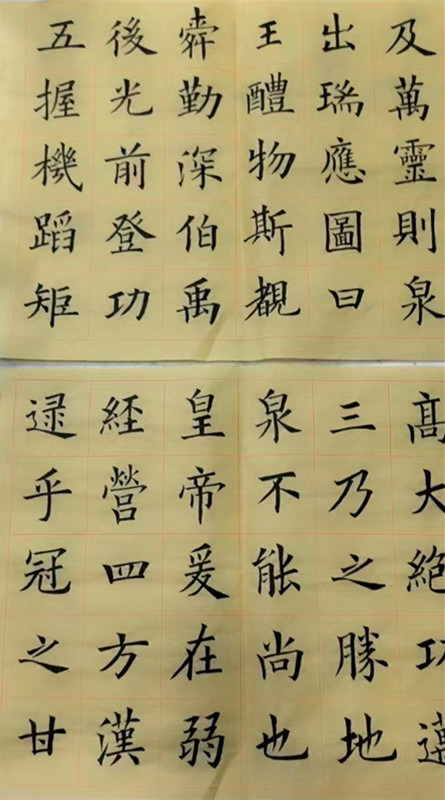 及萬靈則泉
出瑞應圖曰
王醴物斯覩
舜勤深伯禹
後光前登功
五握機蹈矩
髙大絶功邁
三乃之勝地
泉不能尚也
皇帝爰在弱
經營四方漢
逮乎冠之甘